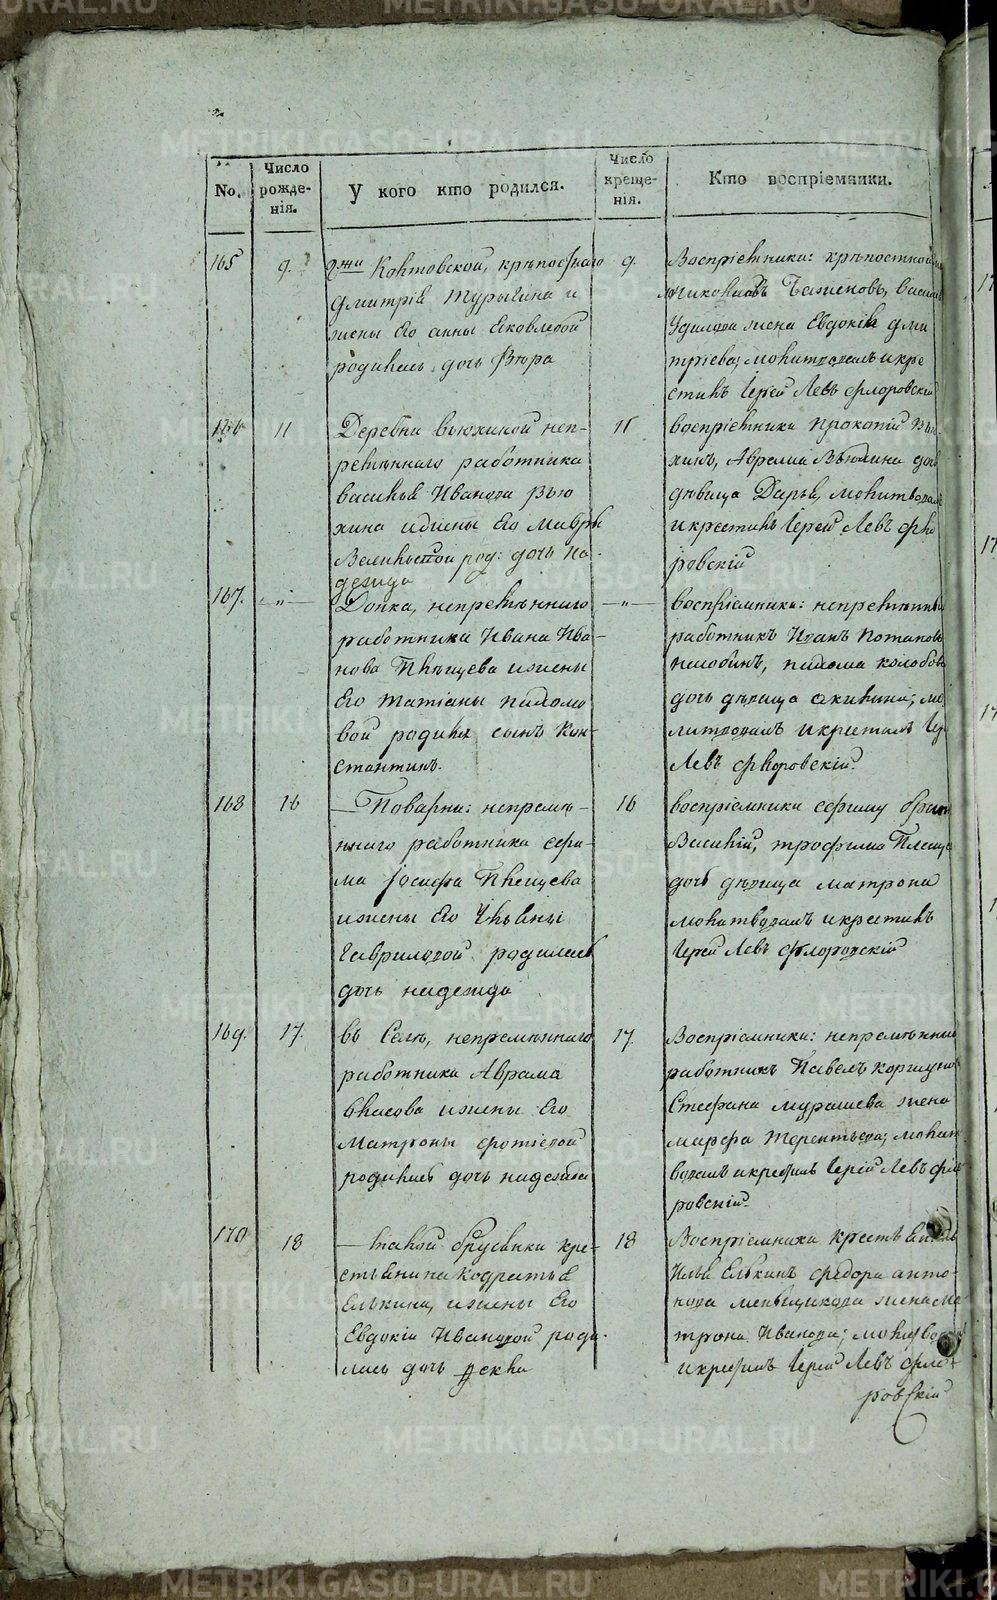 No.
Число рожде-нія.
У кого кто родился.
Число креще-нія.
Кто воспріемники.
165
9.
д:жи Коптовской, крѣпостнаго
Дмитрія Турыгина и
жены Его Анны Яковлевой
родилась дочь Вѣра
9.
Воспріемники: крѣпостной
Баженовъ, Васил
жена Евдокія Дми
тріева; молитвовалъ и кре
стилъ Іерей Левъ Флоровскій
166
11
Деревни Вьюхиной неп-
ремѣннаго работника
Василья Иванова Вью
хина и жены Его Мавры
Васильевой род: дочь На-
дежда
11
воспріемники Прокопій Вью-
хинъ, Аврама Вьюхина дочь
дѣвица Дарья, молитвовалъ
и крестилъ Іерей Левъ Фло
ровскій
167.
— „ —
Допка, непремѣннаго
работника Ивана Ива-
нова Плѣщева и жены
Его Татіаны Пахомо
вой родился сынъ Кон-
стантинъ.
— „ —
воспріемники: непремѣнный
работникъ Иванъ Потаповъ
Пахома Колобов
дочь дѣвица Акилина; мо
литвовалъ и крестилъ Іер
Левъ Флоровскій.
168
16
— Поварни: непремѣ-
ннаго работника Ефи-
ма Іосифа Плещева
и жены Его Ульяны
Гавриловой родилась
дочь Надежда
16
воспріемники Ефиму братъ
Василій, Трофима Плеще
дочь дѣвица Матрона
молитвовалъ и крестилъ
Іерей Левъ Флоровскій
169.
17.
въ Селѣ, непремѣннаго
работника Аврама
Власова и жены Его
Матроны Фотіевой
родилась дочь Надежда
17.
Воспріемники: непремѣнный
работникъ Павелъ
Стефана Мурашева жена
Марфа Терентьева; молит
вовалъ и крестилъ Іерей Левъ Фло
ровскій
170
18
— кре-
стьянина Кодратья
Елькина, и жены Его
Евдокіи Ивановой роди-
лась дочь Фекла
18
Воспріемники крестьянинъ
Илья Елькинъ Федора Анто-
нова Меньщикова жена Ма
трона Иванова; молитвовалъ
и крестилъ Іерей Левъ Фло-
ровскій
METRIKI.GASO-URAL.RU